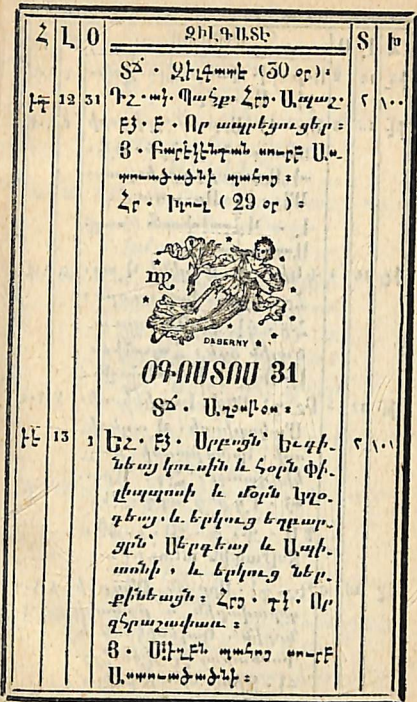 Հ Լ Օ ԶԻԼԳԱՏԷ Տ Խ
ՏՃ · Զիլգատէ (30 օր)։
12 31 Դշ · ակ · Պահք։ Հրց · Ապաշ·
ԲՁ · Բ · Որ ապրեցուցեր ։
Յ · Բարեկենդան սուրբ Աս–
տուածածնի պահոց ։
Հր · Իլուլ ( 29 օր ) ։
DEBERNY
ՕԳՈՍՏՈՍ 31
ՏՃ · Աղօսևօս ։
13 1 Եշ · ԲՁ · Սրբոցն՝ Եւգի–
նեայ կուսին և հօրն Փի–
լիպպոսի և մօրն Կղօ–
դեայ, և երկուց եղբար–
ցըն՝ Սերգեայ և Ապի–
տոնի , և երկուց ներ–
քինեացն ։ Հրց · դկ · Որ
զհրաշափառ ։
Յ · Սկիզբն պահոց սուրբ
Աստուածածնի ։